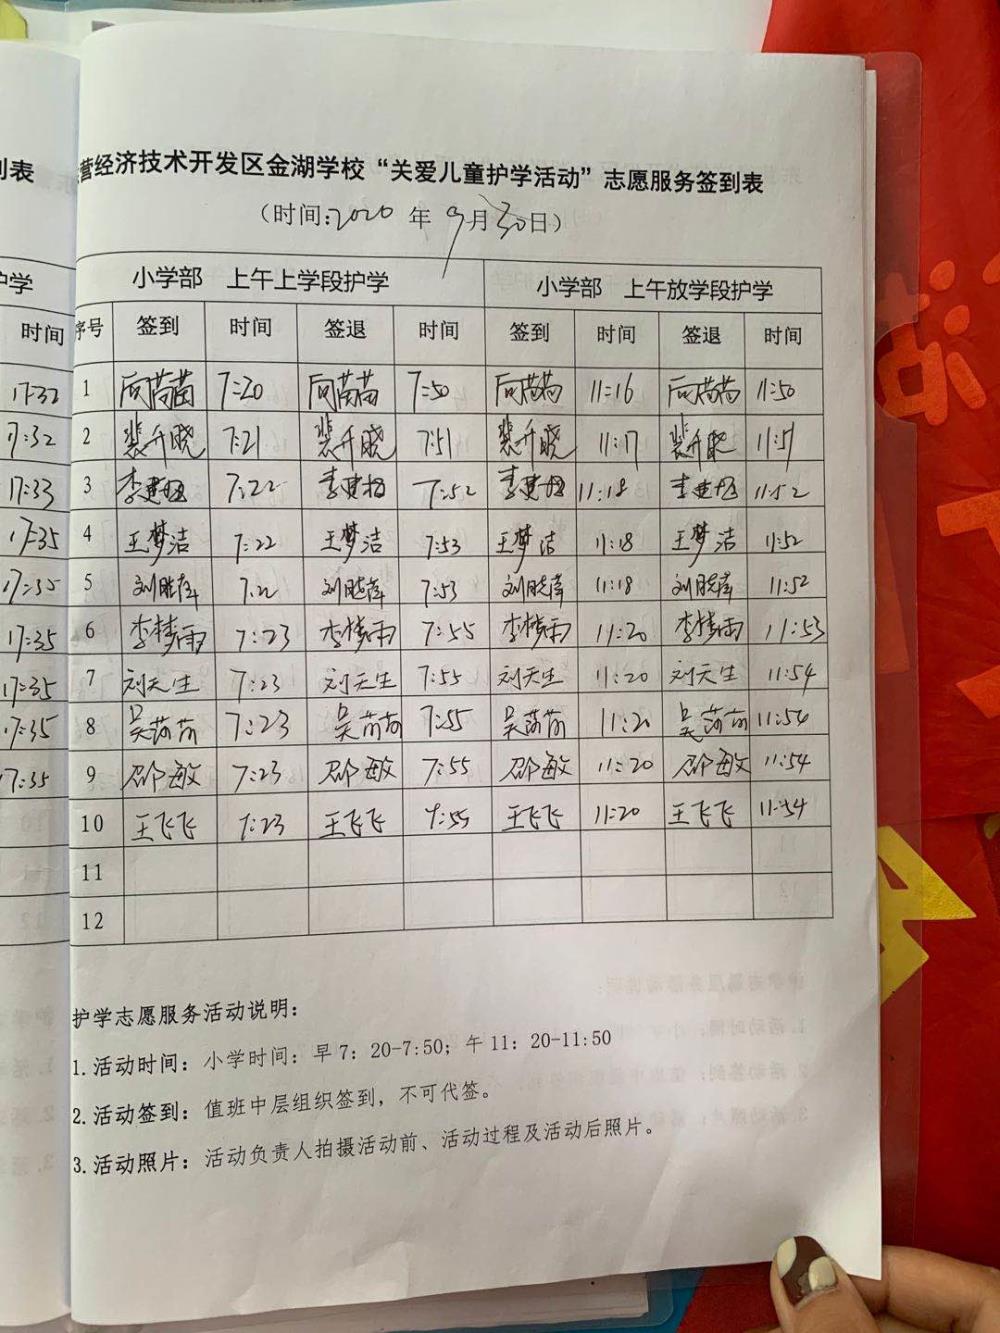 到表
营经济技术开发区金湖学校“关爱儿童护学活动”志愿服务签到表
(时间:2020 年 9月30日)
护学
小学部 上午上学段护学 小学部 上午放学段护学
时间 序号 签到 时间 签退 时间 签到 时间 签退 时间
17:32 1 7:20 7:50 11:16 11:50
17:32 2 裴升晓 7:21 裴升晓 7:51 裴升晓 11:17 裴升晓 11:51
17:33 3 7:22 7:52 11:18 11:52
17:35 4 王梦洁 7:22 王梦洁 7:53 王梦洁 11:18 王梦洁 11:52
17:35 5 7:22 7:53 11:18 11:52
17:35 6 李梦雨 7:23 李梦雨 7:55 李梦雨 11:20 李梦雨 11:53
17:35 7 刘天生 7:23 刘天生 7:55 刘天生 11:20 刘天生 11:54
17:35 8 7:23 7:55 11:20 11:54
17:35 9 邵敏 7:23 邵敏 7:55 邵敏 11:20 邵敏 11:54
10 王飞飞 7:23 王飞飞 7:55 王飞飞 11:20 王飞飞 11:54
11
12
护学志愿服务活动说明:
1.活动时间:小学时间:早7:20-7:50;午11:20-11:50
2.活动签到:值班中层组织签到,不可代签。
3.活动照片:活动负责人拍摄活动前、活动过程及活动后照片。